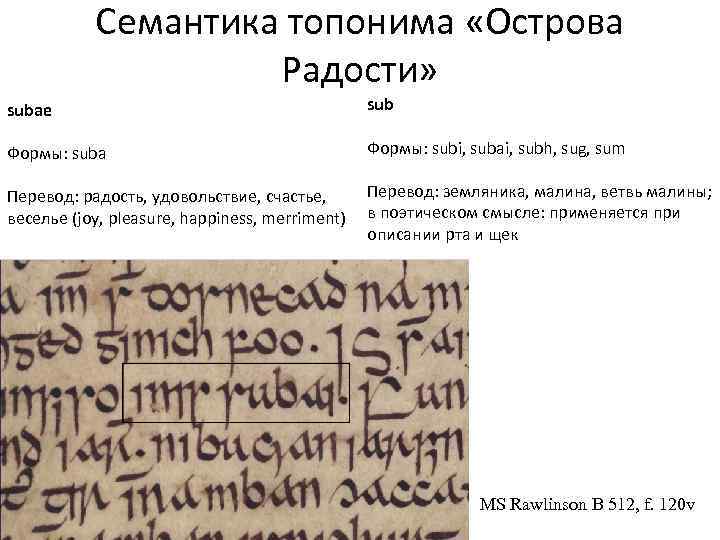 Семантика топонима «Острова
Радости»
subae
Формы: suba
Перевод: радость, удовольствие, счастье,
веселье (joy, pleasure, happiness, merriment)
sub
Формы: subi, subai, subh, sug, sum
Перевод: земляника, малина, ветвь малины;
в поэтическом смысле: применяется при
описании рта и щек
dornecad na m
subai.
iar. nibucian iar
namban
MS Rawlinson B 512, f. 120v